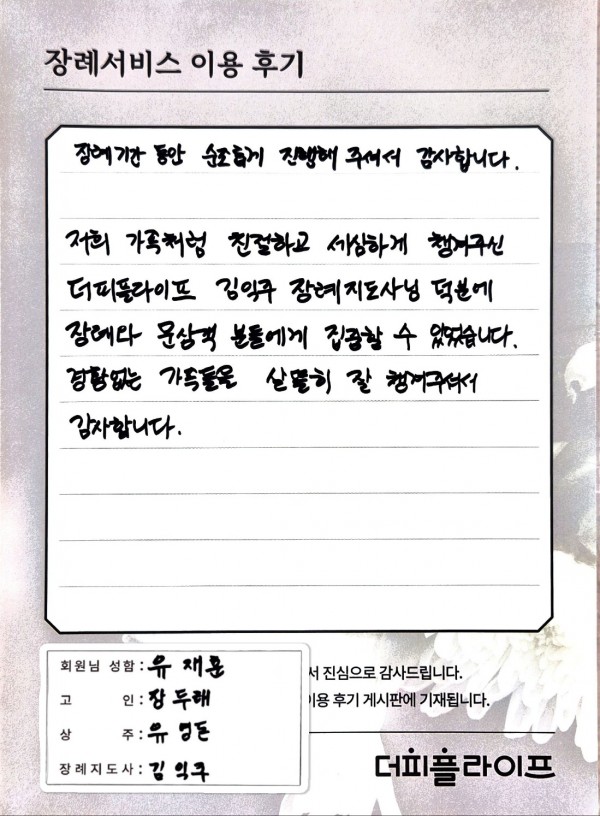 장례서비스 이용 후기
장례기간 동안 순조롭게 진행해 주셔서 감사합니다.
저희 가족처럼 친절하고 세심하게 챙겨주신
더피플라이프 김익주 장례지도사님 덕분에
장례와 문상객 분들에게 집중할 수 있었습니다.
경황없는 가족들을 살뜰히 잘 챙겨주셔서
감사합니다.
서 진심으로 감사드립니다.
이용 후기 게시판에 기재됩니다.
회원님 성함 : 유재훈
고 인 : 장두래
상 주 : 유
장례지도사 : 김익주
더피플라이프